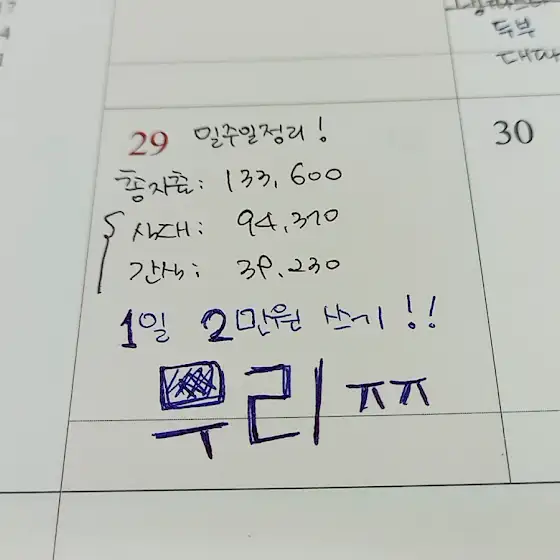 두부
29 일주일정리!
30
총지출: 133,600
식대: 94,370
간식: 39,230
1일 2만원 쓰기!!
무리ㅠㅠ